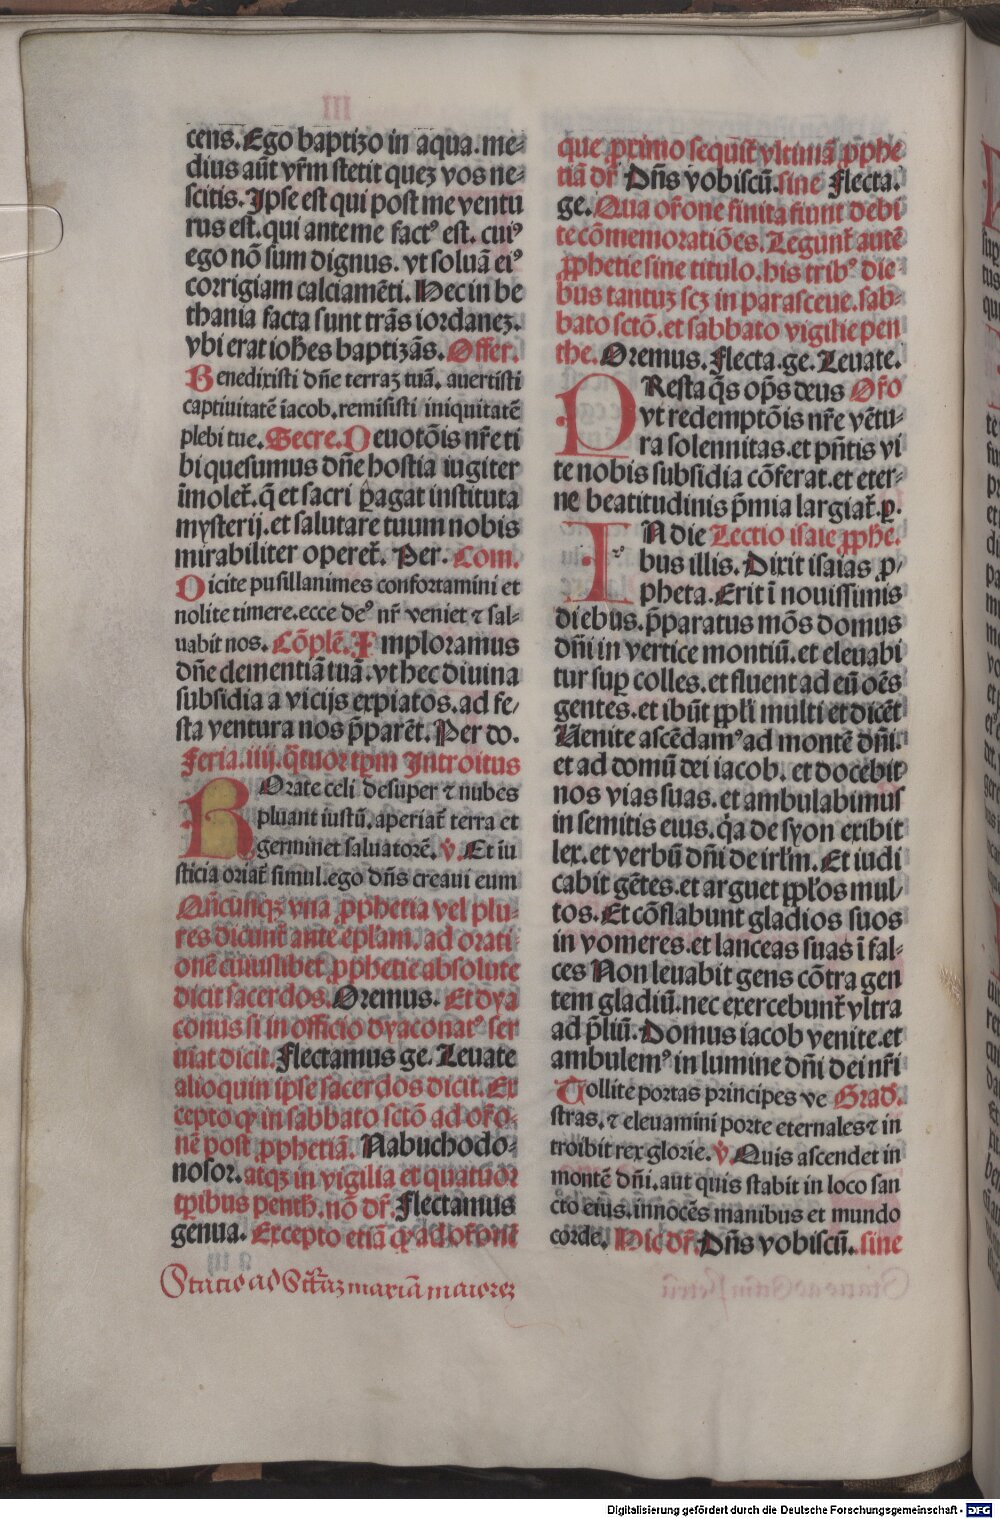 cens. Ego baptizo in aqua. me-
dius aūt vr̄m stetit quez vos ne-
scitis. Ipse est qui post me ventu
rus est. qui ante me factꝰ est. cuiꝰ
ego nō sum dignus. vt soluā eiꝰ
corrigiam calciamēti. Hec in be
thania facta sunt trās iordanez.
vbi erat ioh̄es baptizās. Offer.
Benedixisti dn̄e terraz tuā. auertisti
captiuitatē iacob. remisisti iniquitatē
plebi tue. Secre. Deuotōis nr̄e ti
bi quesumus dn̄e hostia iugiter
īmolet᷑. q̄ et sacri ꝑagat instituta
mysterij. et salutare tuum nobis
mirabiliter operet᷑. Per. Com.
Dicite pusillanimes confortamini et
nolite timere. ecce deꝰ nr̄ veniet ⁊ sal-
uabit nos. Cōplē. Imploramus
dn̄e clementiā tuā. vt hec diuina
subsidia a vicijs expiatos. ad fe-
sta ventura nos p̄parēt. Per do.
Feria. iiij. q̄tuor tp̄m Introitus
Rorate celi desuper ⁊ nubes
pluant iustū. aperiat᷑ terra et
germinet saluatorē. v̄. Et iu
sticia oriat᷑ simul. ego dn̄s creaui eum
Qn̄cunqz vna ꝓphetia vel plu-
res dicunt᷑ ante ep̄lam. ad orati-
onē cuiuslibet ꝓphetie absolute
dicit sacerdos. Oremus. Et dya
conus si in officio dyaconatꝰ ser
uiat dicit. Flectamus ge. Leuate
alioquin ipse sacerdos dicit. Ex
cepto ꝙ in sabbato sctō ad or̄o-
nē post ꝓphetiā. Nabuchodo-
nosor. atqz in vigilia et quatuor
tp̄ibus penth̄. nō dr̄. Flectamus
genua. Excepto etiā ꝙ ad or̄onē
Statio ad Sctāz mariā maiorez
que ꝓximo sequit᷑ vltimā ꝓphe
tiā dr̄ Dn̄s vobiscū. sine Flecta.
ge. Qua or̄one finita fiunt debi
te cōmemoratiōes. Legunt᷑ autē
ꝓphetie sine titulo. his tribꝰ die-
bus tantuz scz in parasceue. sab-
bato sctō. et sabbato vigilie pen
the. Oremus. Flecta. ge. Leuate.
PResta q̄s op̄s deus Or̄o
vt redemptōis nr̄e vētu-
ra solennitas. et pn̄tis vi
te nobis subsidia cōferat. et eter-
ne beatitudinis p̄mia largiat᷑. ꝑ.
IN die Lectio isaie ꝓphe.
bus illis. Dixit isaias ꝓ-
pheta. Erit ī nouissimis
diebus. p̄paratus mōs domus
dn̄i in vertice montiū. et eleuabi
tur suꝑ colles. et fluent ad eū oēs
gentes. et ibūt pp̄l'i multi et dicēt
Venite ascēdamꝰ ad montē dn̄i.
et ad domū dei iacob. et docebit
nos vias suas. et ambulabimus
in semitis eius. q̄a de syon exibit
lex. et verbū dn̄i de irl'm. Et iudi
cabit gētes. et arguet pp̄l'os mul-
tos. Et cōflabunt gladios suos
in vomeres. et lanceas suas ī fal-
ces Non leuabit gens cōtra gen
tem gladiū. nec exercebunt᷑ vltra
ad p̄liū. Domus iacob venite. et
ambulemꝰ in lumine dn̄i dei nr̄i
Tollite portas principes ve Grad̄.
stras. ⁊ eleuamini porte eternales ⁊ in
troibit rex glorie. v̄. Quis ascendet in
montē dn̄i. aut quis stabit in loco san
cto eius. innocēs manibus et mundo
corde. Hic dr̄. Dn̄s vobiscū. sine
Digitalisierung gefördert durch die Deutsche Forschungsgemeinschaft - DFG